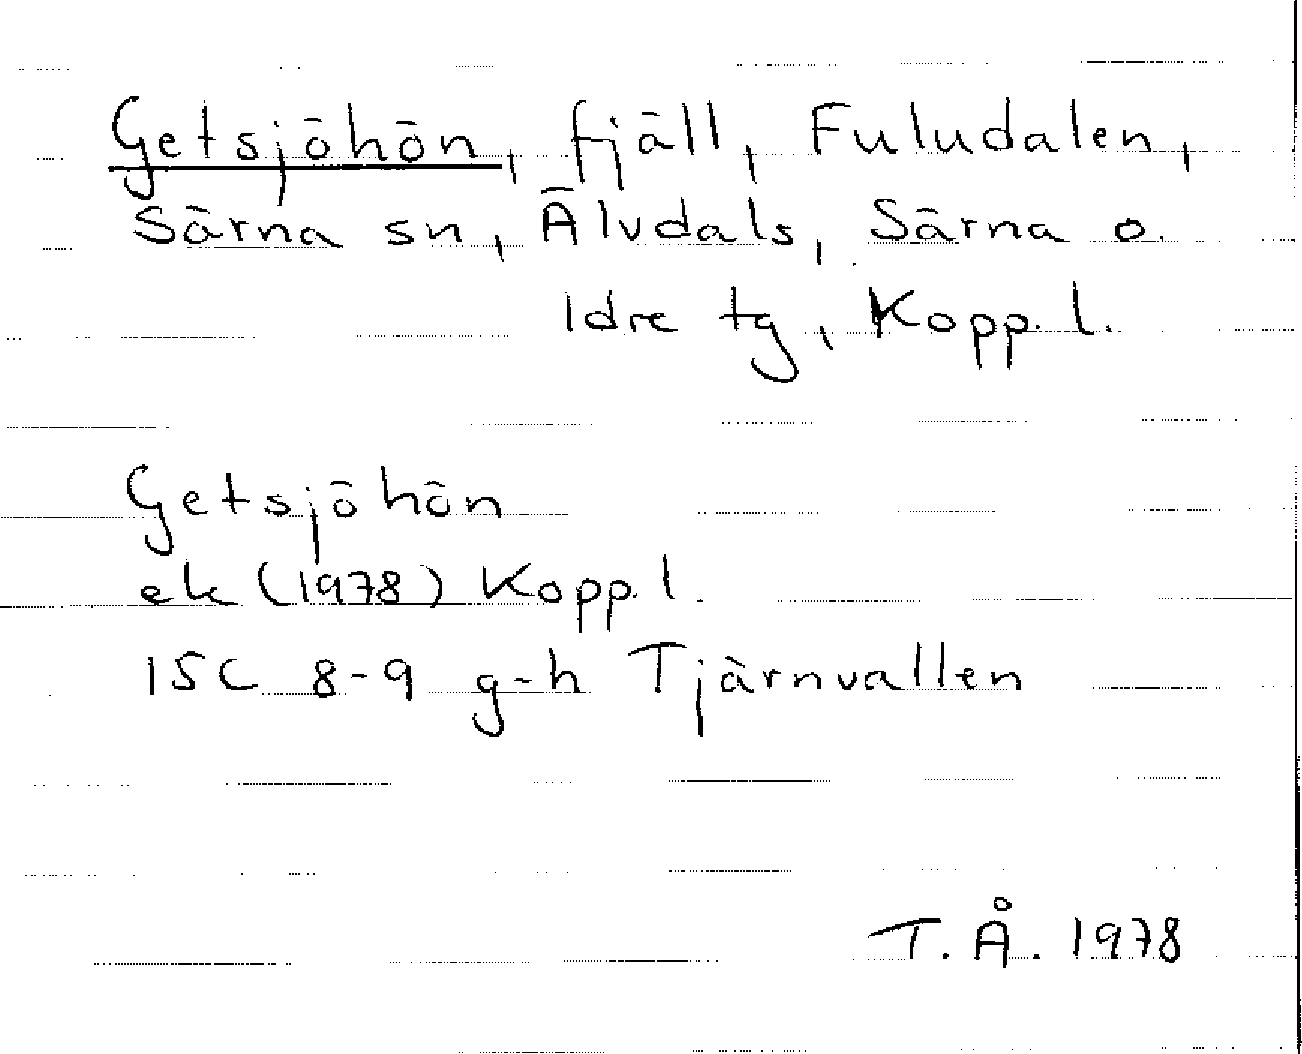 Getsjöhön, fjäll, Fuludalen,
Särna sn, Älvdals, Särna o.
Idre tg, Kopp. l.
Getsjöhön
ek (1978) Kopp. l.
15C 8-9 g-h Tjärnvallen
T.Å. 1978